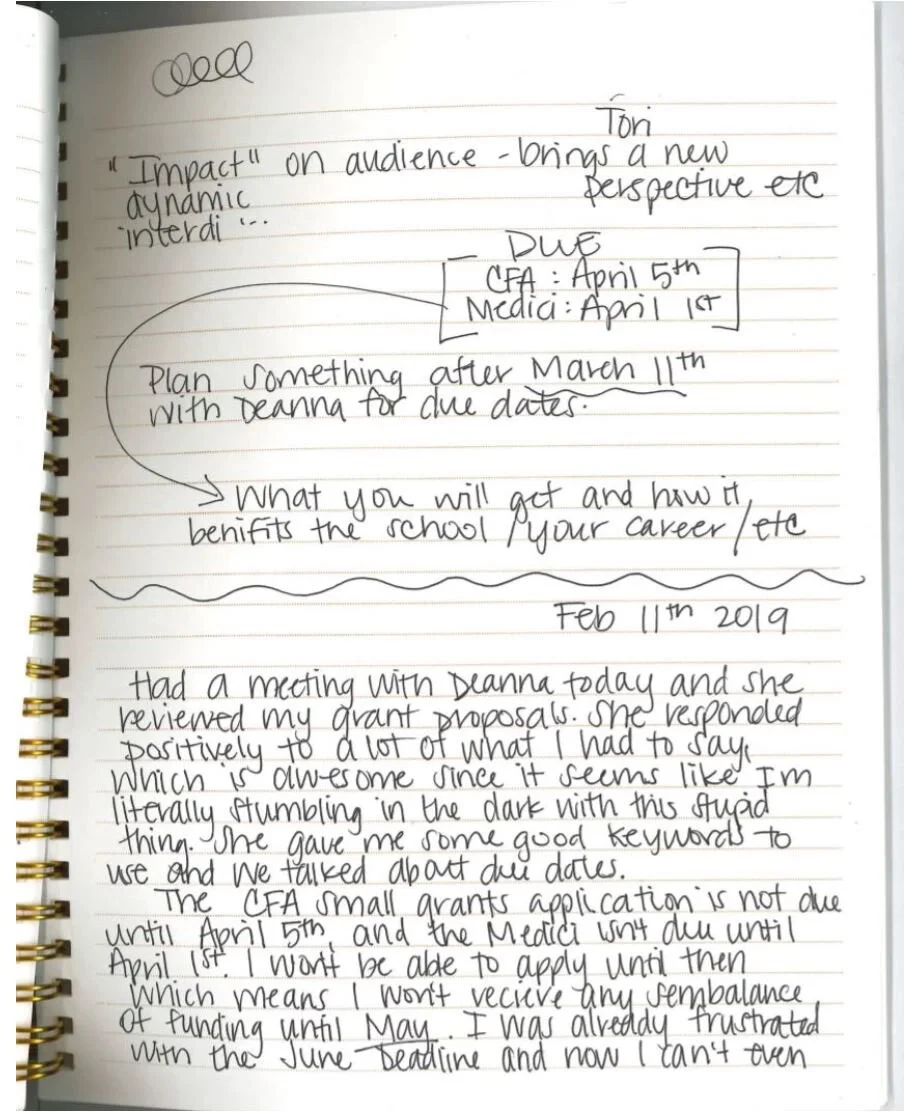 Tori
"Impact" on audience - brings a new
dynamic perspective etc
interdi ...
DUE
CFA : April 5th
Medici : April 1st
Plan something after March 11th
with Deanna for due dates.
What you will get and how it
benifits the school / your career / etc
Feb 11th 2019
Had a meeting with Deanna today and she
reviewed my grant proposals. She responded
positively to a lot of what I had to say,
which is awesome since it seems like I'm
literally stumbling in the dark with this stupid
thing. She gave me some good keywords to
use and we talked about due dates.
The CFA small grants application is not due
until April 5th, and the Medici isn't due until
April 1st. I won't be able to apply until then
which means I won't recieve any sembalance
of funding until May. I was already frustrated
with the June deadline and now I can't even